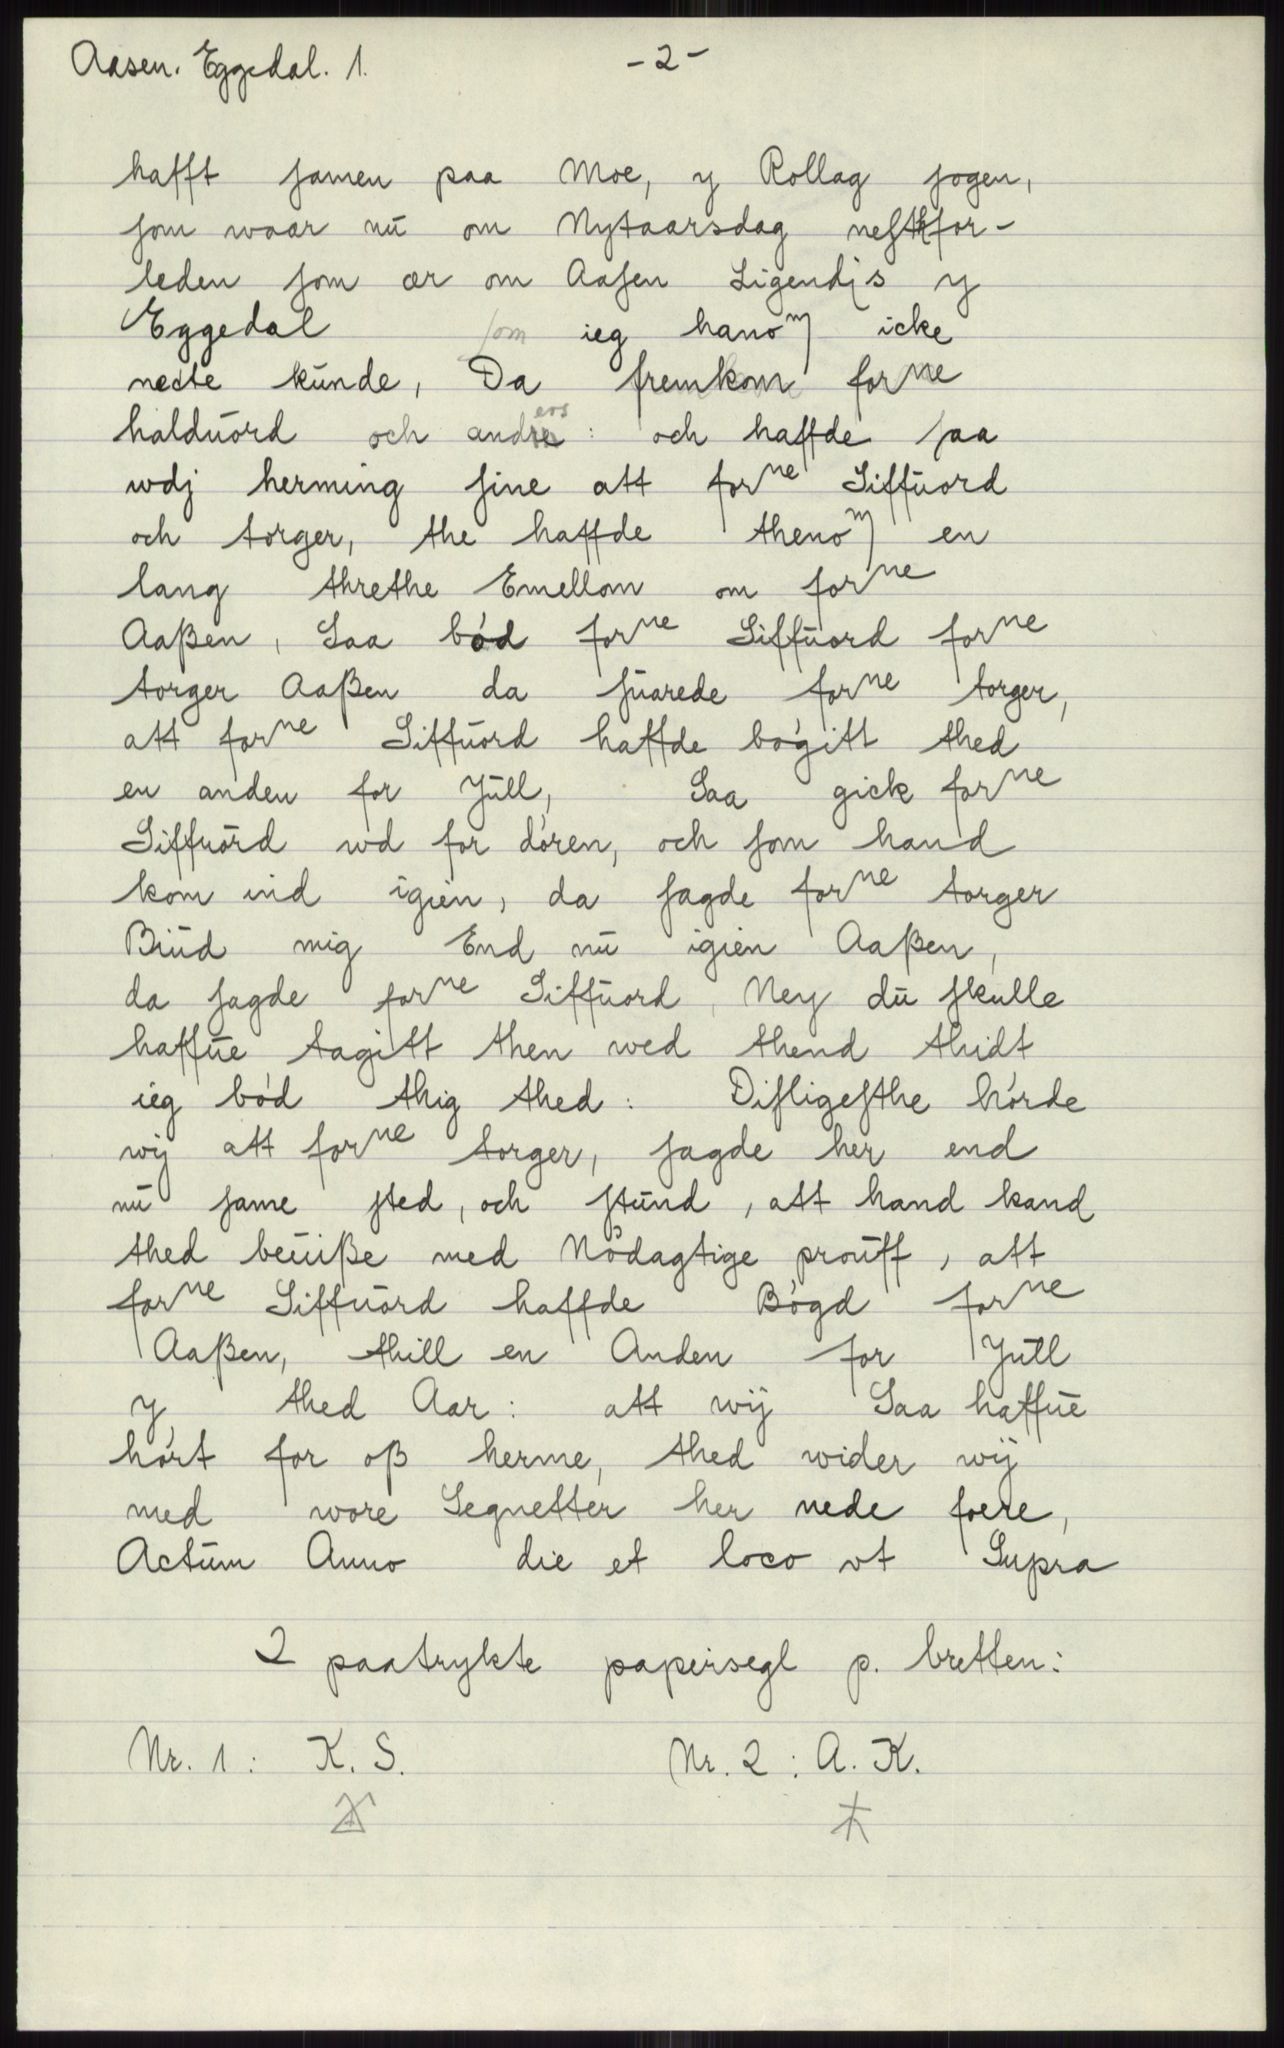 Aasen. Eggedal. 1. -2-
hafft ſamen paa Moe, y Rollag ſogen,
ſom waar nū om Nytaarsdag neſthfor-
leden ſom ær om Aaſen Ligendjs y
Eggedal ſom ieg hanoᵐ icke
necte kūnde, Da fremkom forⁿᵉ
haldūord och anders: och haffde ſaa
wdj herming ſine att forⁿᵉ Siffūord
och torger, the haffde thenoᵐ en
lang threthe Emellom om forⁿᵉ
Aaßen, Saa bód forⁿᵉ Siffūord forⁿᵉ
torger Aaßen da ſūarede forⁿᵉ torger,
att forⁿᵉ Siffūord haffde bógitt thed
en anden for Jūll, Saa gick forⁿᵉ
Siffūord wd for dóren, och ſom hand
kom ind igien, da ſagde forⁿᵉ torger
Biūd mig End nū igien Aaßen,
da ſagde forⁿᵉ Siffūord, Ney dū ſkulle
haffūe tagitt then wed thend thidt
ieg bód thig thed: Diſligeſthe hórde
wij att forⁿᵉ torger, ſagde her end
nū ſame ſted, och ſtūnd, att hand kand
thed beūiße med Nódagtige proūff, att
forⁿᵉ Siffūord haffde Bógd forⁿᵉ
Aaßen, thill en Anden for Jūll
y thed Aar: att wij Saa haffūe
hórt for oß herme, thed wider wij
med wore Segnetter her nede foere,
Actūm Anno die et loco vt Supra
2 paatrykte papirsegl p. bretten:
Nr. 1: K. S. Nr. 2: A. K.